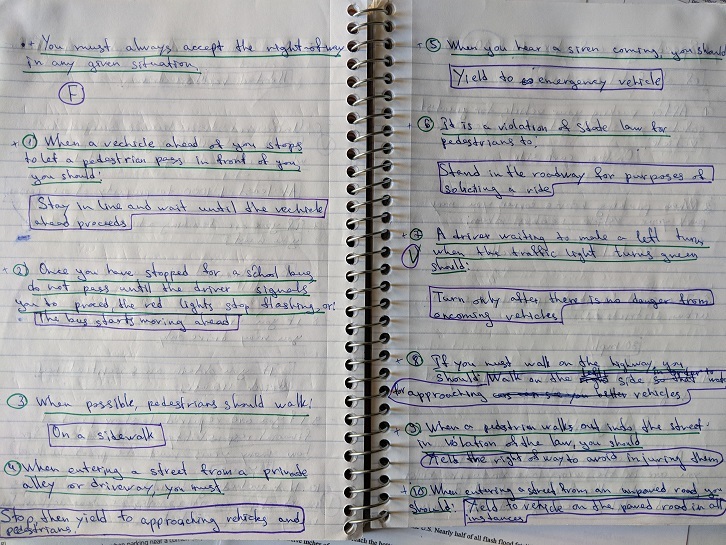 + You must always accept the right-of-way
in any given situation.
F
+ 1 When a vechicle ahead of you stops
to let a pedestrian pass in front of you
you should:
Stay in line and wait until the vechicle
ahead proceeds
+ 2 Once you have stopped for a school bus
do not pass until the driver signals
you to proced, the red lights stop flashing, or:
The bus starts moving ahead
3 When possible, pedestrians should walk:
On a sidewalk
4 When entering a street from a private
alley or driveway, you must
Stop then yield to approaching vehicles and
pedestrians.
+ 5 When you hear a siren coming, you should
Yield to emergency vehicle
+ 6 It is a violation of State law for
pedestrians to:
Stand in the roadway for purposes of
soliciting a ride
+ 7 A driver waiting to make a left turn
V when the traffic light turns green
should:
Turn only after there is no danger from
oncoming vehicles
+ 8 If you must walk on the highway, you
should Walk on the side
approaching vehicles
+ 9 When a pedestrian walks out into the street
in violation of the law, you should
Yield the right of way to avoid injuring them
+ 10 When entering a street from an unpaved road you
should: Yield to vehicle on the paved road in all
instances
U.S. Nearly half of all flash flood